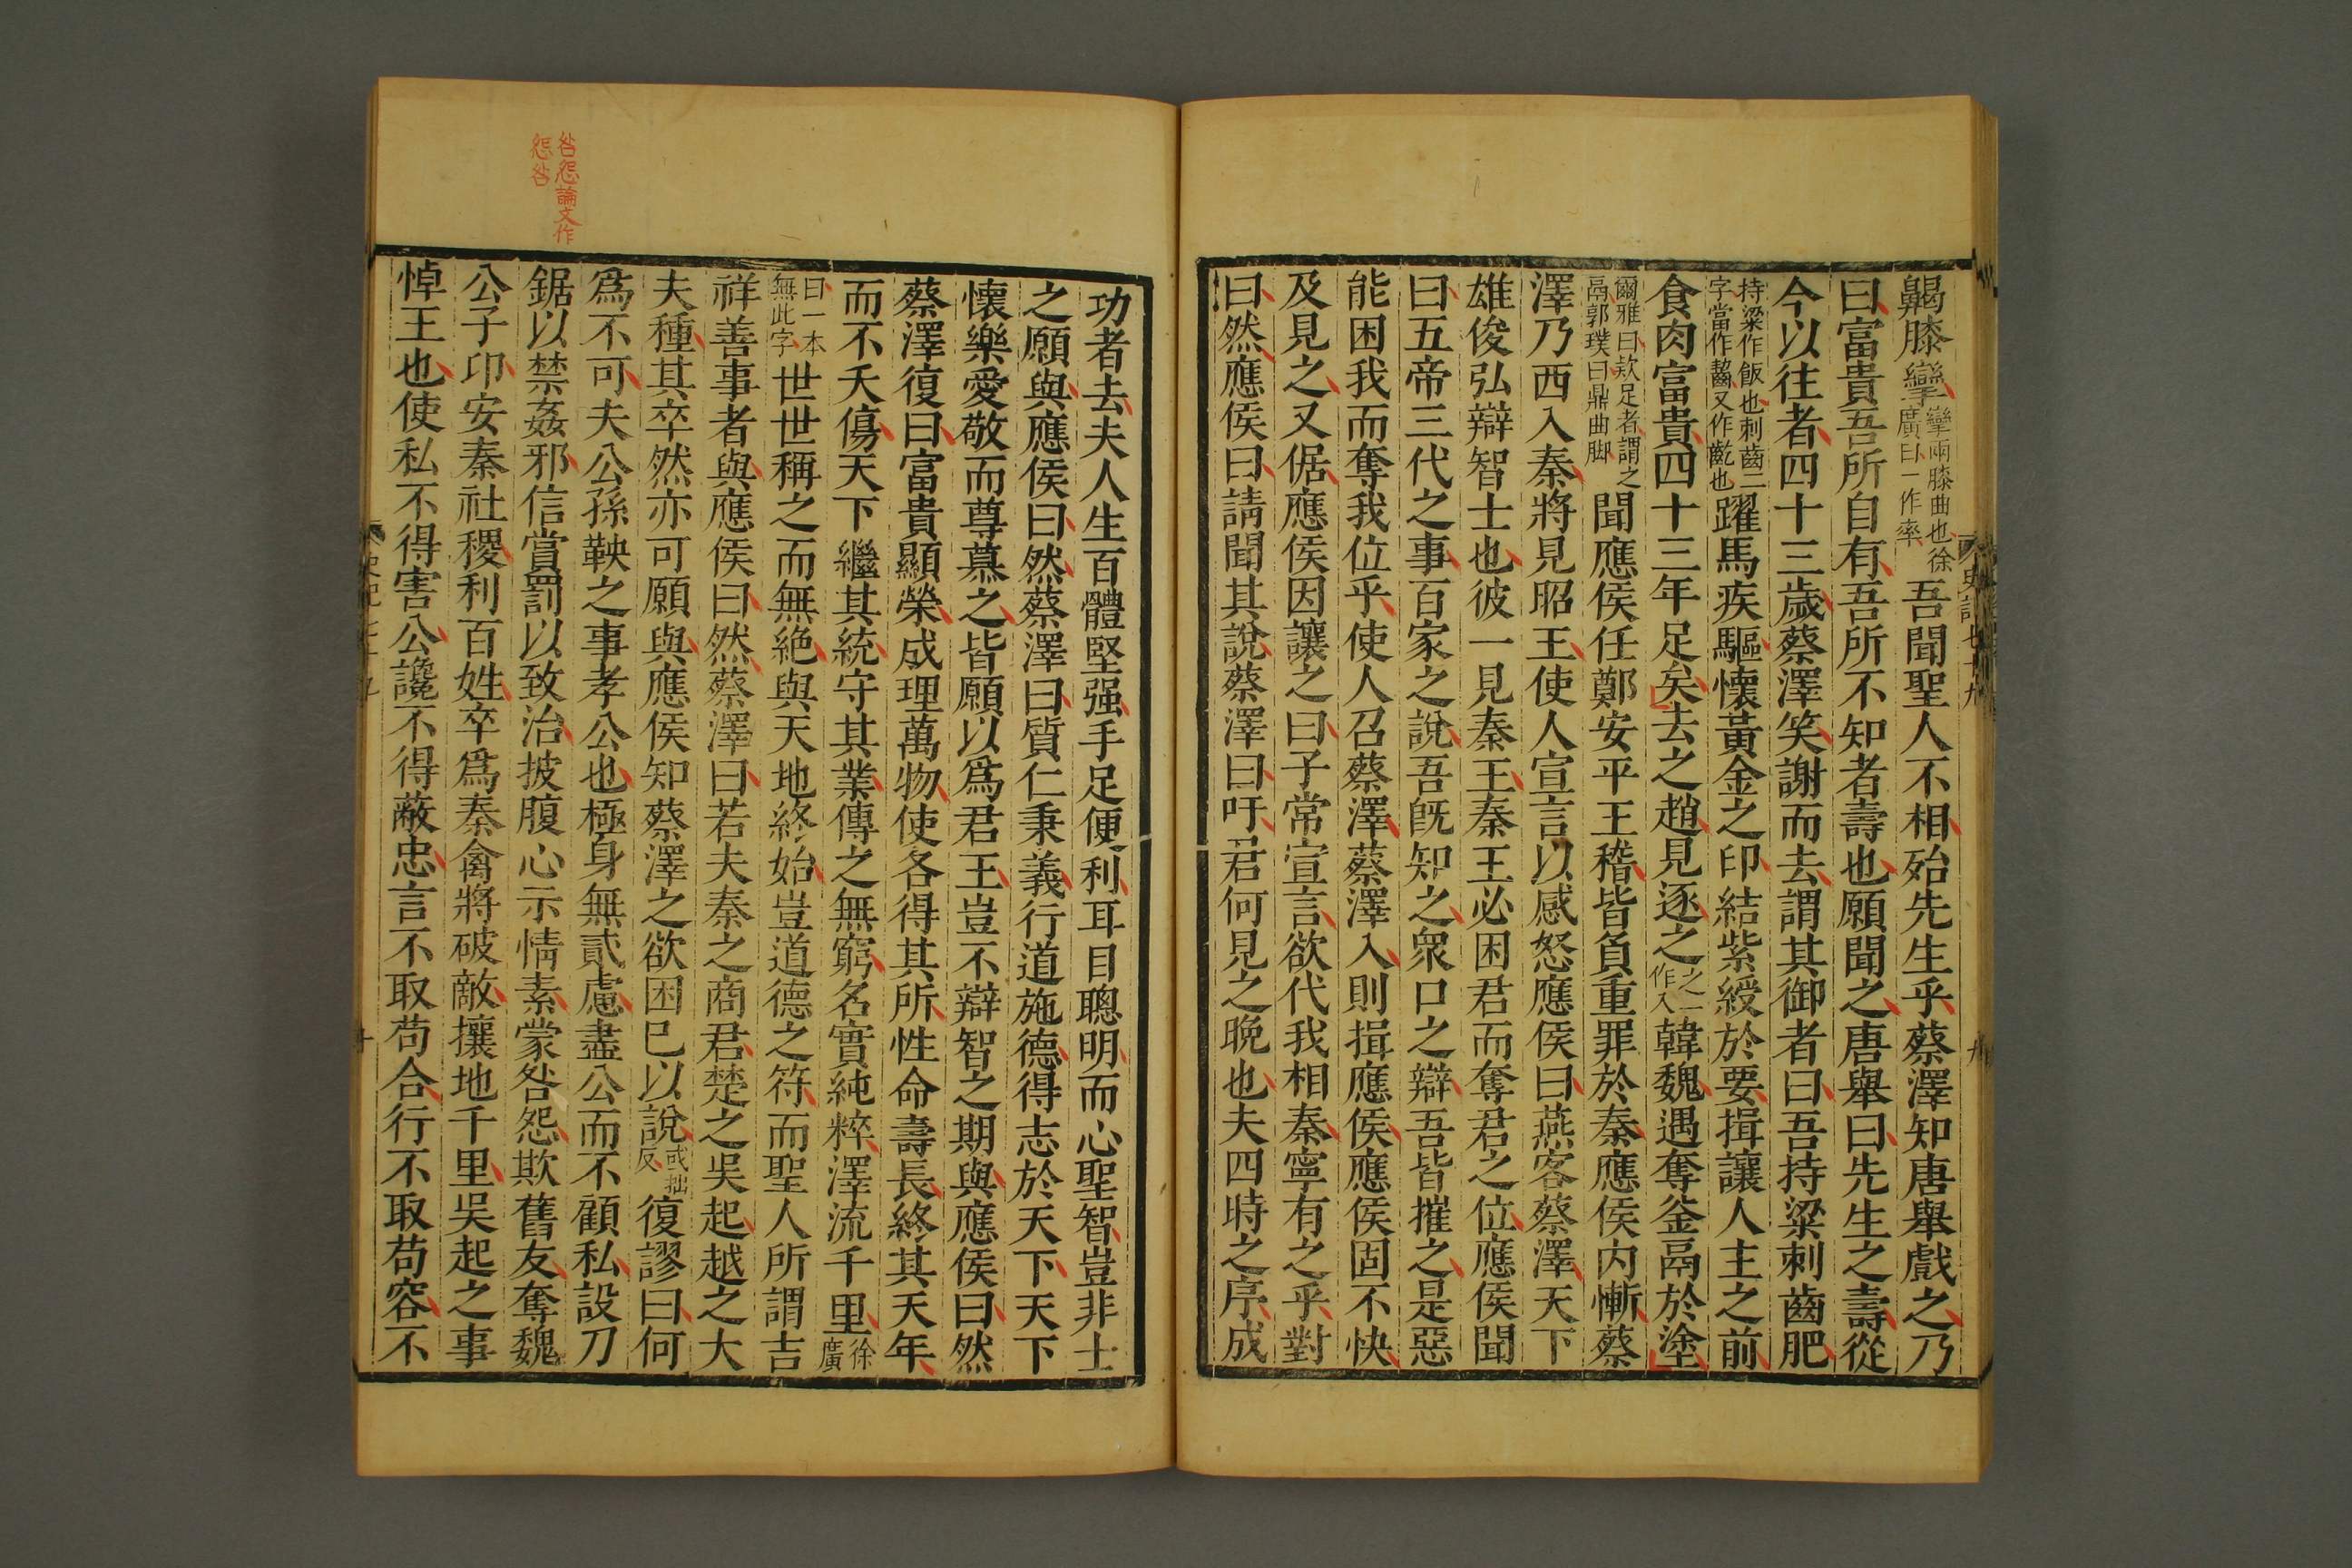 鼻曷膝攣攣兩膝曲也徐廣曰一作率吾聞聖人不相殆先生乎蔡澤知唐舉戲之乃
曰富貴吾所自有吾所不知者壽也願聞之唐舉曰先生之壽從
今以往者四十三歲蔡澤笑謝而去謂其御者曰吾持粱刺齒肥
持粱作飯也刺齒二字當作齧又作齕也躍馬疾驅懷黃金之印結紫綬於要揖讓人主之前
食肉富貴四十三年足矣去之趙見逐之之一作入韓魏遇奪釜鬲於塗
爾雅曰款足者謂之鬲郭璞曰鼎曲脚聞應侯任鄭安平王稽皆負重罪於秦應侯內慚蔡
澤乃西入秦將見昭王使人宣言以感怒應侯曰燕客蔡澤天下
雄俊弘辯智士也彼一見秦王秦王必困君而奪君之位應侯聞
曰五帝三代之事百家之說吾旣知之衆口之辯吾皆摧之是惡
能困我而奪我位乎使人召蔡澤蔡澤入則揖應侯應侯固不快
及見之又倨應侯因讓之曰子常宣言欲代我相秦寧有之乎對
曰然應侯曰請聞其說蔡澤曰吁君何見之晚也夫四時之序成
史記七十九
九
功者去夫人生百體堅强手足便利耳目聰明而心聖智豈非士
之願與應侯曰然蔡澤曰質仁秉義行道施德得志於天下天下
懷樂愛敬而尊慕之皆願以爲君王豈不辯智之期與應侯曰然
蔡澤復曰富貴顯榮成理萬物使各得其所性命壽長終其天年
而不夭傷天下繼其統守其業傳之無窮名實純粹澤流千里徐廣
曰一本無此字世世稱之而無絶與天地終始豈道德之符而聖人所謂吉
祥善事者與應侯曰然蔡澤曰若夫秦之商君楚之吳起越之大
夫種其卒然亦可願與應侯知蔡澤之欲困已以說或拙反復謬曰何
爲不可夫公孫鞅之事孝公也極身無貳慮盡公而不顧私設刀
鋸以禁姦邪信賞罰以致治披腹心示情素蒙咎怨欺舊友奪魏
公子卬安秦社稷利百姓卒爲秦禽將破敵攘地千里吳起之事
悼王也使私不得害公讒不得蔽忠言不取苟合行不取苟容不
咎怨論文作
怨咎